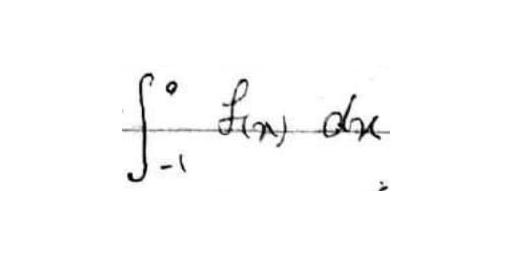 ∫_{-1}^{0} f(x) dx